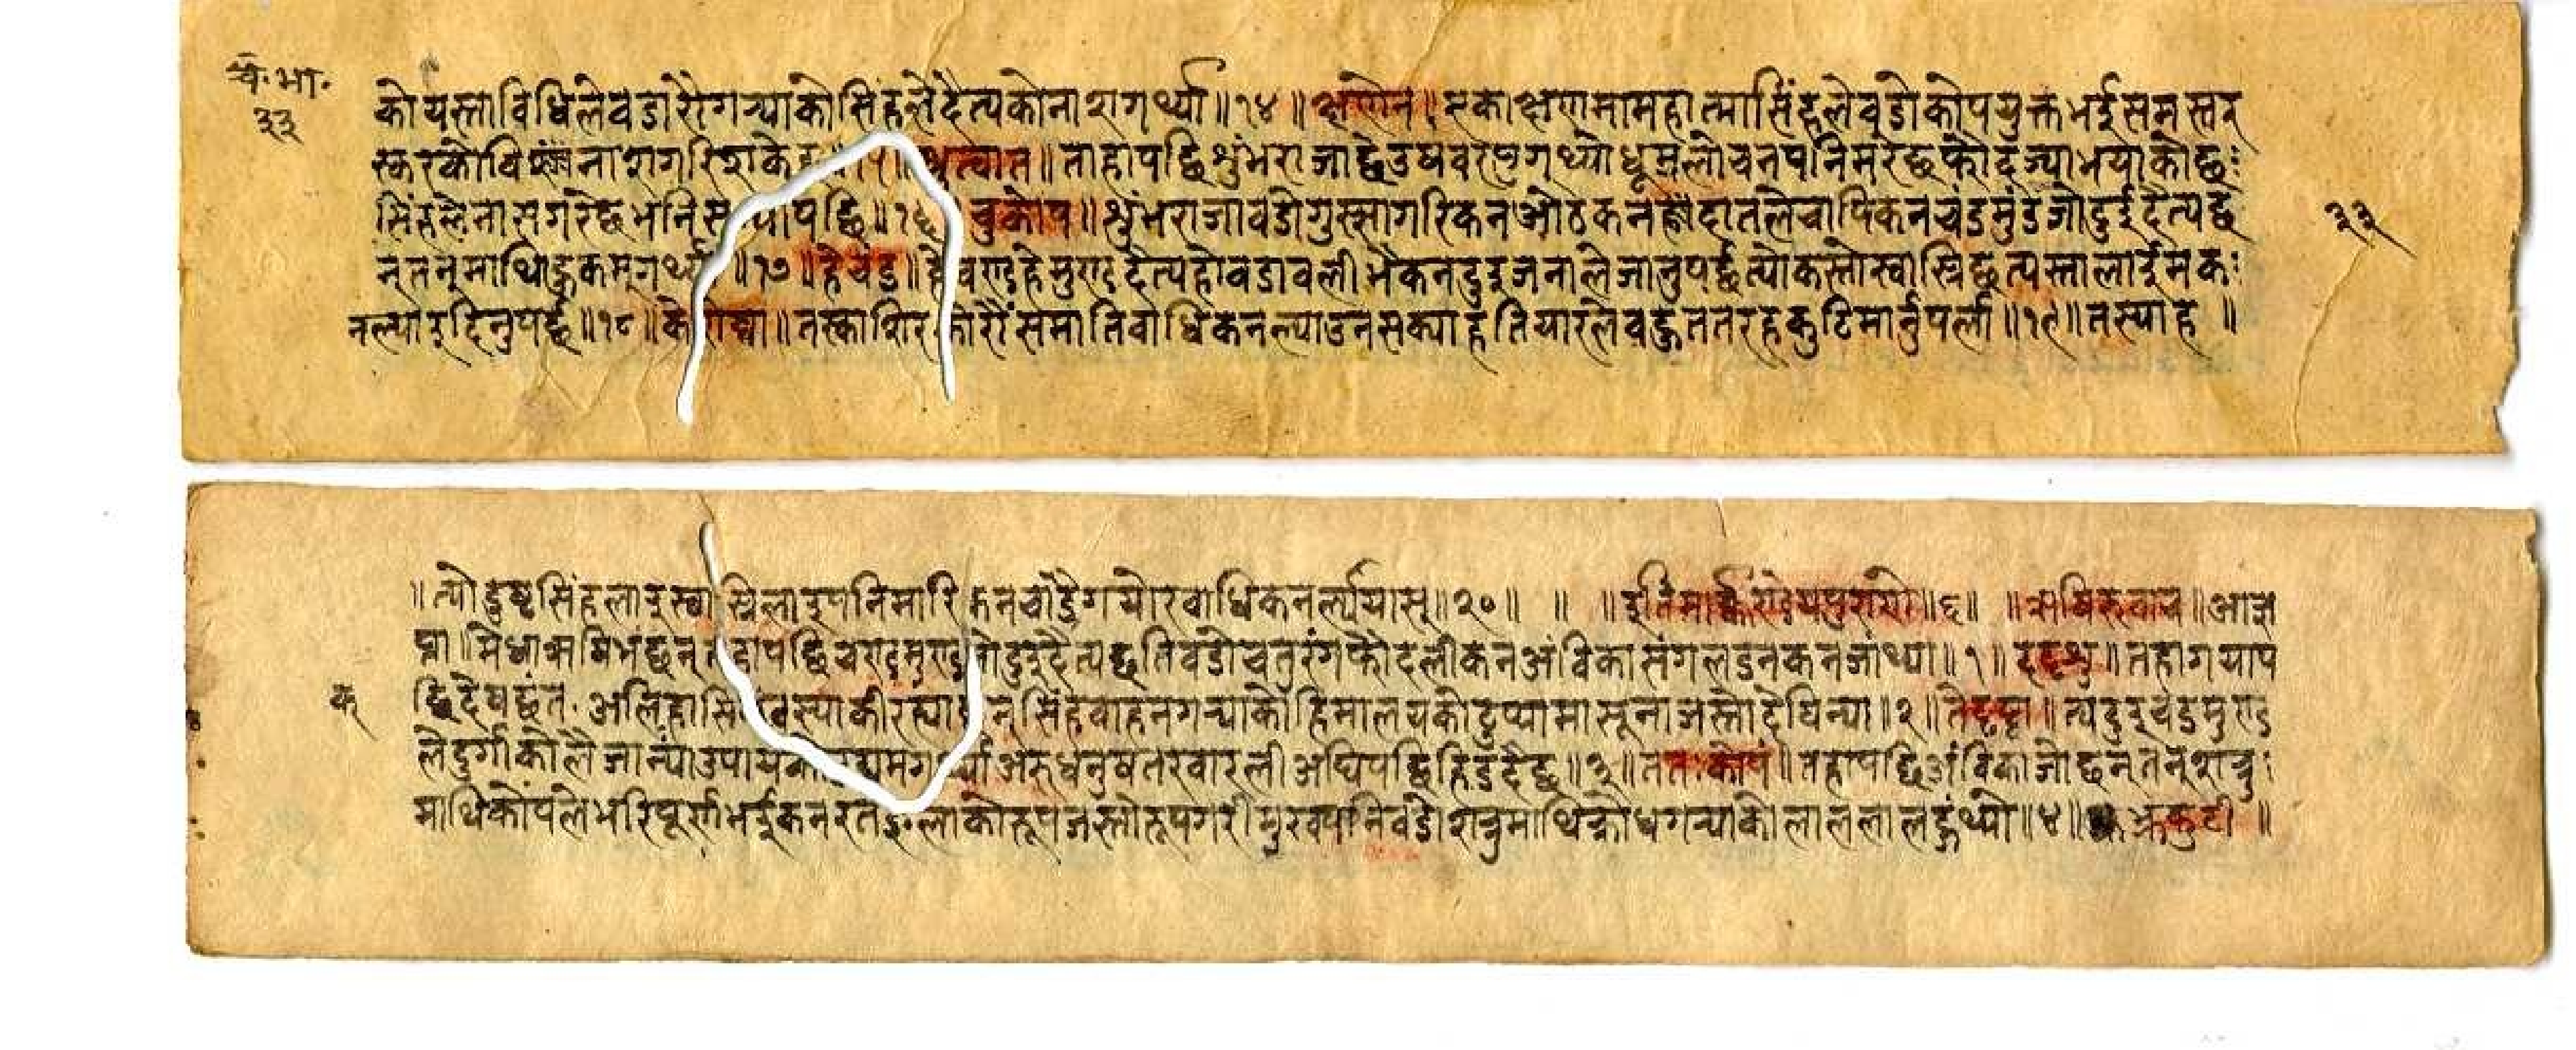 चं. भा.
३३
को यस्ता विधिले वडा रोग गन्याको सिंहले दैत्यको नाश गर्थ्यो ॥१४॥ क्षणेन ॥ एका क्षणमा महात्मा सिंहले वडो कोपयुक्त भई सनस्वर
स्करको वि नाश गरि शकेछ श्रुत्वात ॥ ताहापछि शुंभ राजाछे गर्थ्यो धूम्रलोचन पनि मरेछ फौद ज्या भयाको छ
सिंहले नास गरेछ भनि पछि ॥१६ चुकोप ॥ शुंभ राजा वडो गुस्सा गरिकन ओठकन दातले चापिकन चंडमुंड जो दुई दैत्य छ
३३
न् तनूमाथि हुकम् गर्थ्यो ॥१७॥ हे चंड ॥ हे चण्ड हे मुण्ड दैत्य हो वडा वली भैकन दुई जनाले जानु पर्छ त्यो कस्तो स्वास्नि छ त्यस्तालाई मक
न ल्याइदिनु पर्छ ॥१८॥ केशेष्वा ॥ तस्का शिरको रौं समातिवाधिकन ल्याउन सक्या हतियारले वहुत तरह कुटि मार्नु पर्ला ॥१९॥ तस्या ह ॥
॥ त्यो दुष्ट सिंहलाई स्वास्निलाई पनि मारिकन चाँडै गयोर वाधिकन र्ल्ययासू ॥२०॥ ॥ ॥ इति मार्कण्डेयपुराणे ॥६॥ ॥ ऋषिरुवाच ॥ आज्ञ
प्ता ॥ मेधा ऋषि भंछन् तहापछि चण्डमुण्ड जो दुई दैत्य छ तिवडो चतुरंग फौद लीकन अंविका संग लडनकन जांथ्या ॥१॥ ददृशु ॥ तहा गयाप
क
छि देषछंत. अलि हासि सिंह वाहन गन्याको हिमालयको टुप्पामा सूना जस्तो देषिन्या ॥२॥ ते दृष्ट्वा ॥ त्य दुई चंडमुण्ड
ले दुर्गाको लै जान्यां उपाय अरु धनुष तरवार ली अघिपछि हिड्दैछ ॥३॥ ततःकोपं ॥ तहापछि अंविका जो छन् तन् शत्रु
माथि कोपले भरिपूर्ण भईकन रूप जस्तो रूप गरी मुख पनि वडो शत्रुमाथि क्रोध गन्याको लाल लाल हुंथ्यो ॥४॥ भ्रुकुटी ॥